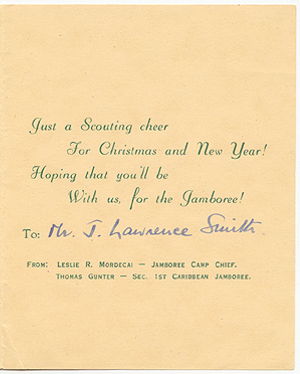 Just a Scouting cheer
For Christmas and New Year!
Hoping that you'll be
With us, for the Jamboree!
To: Mr. J. Lawrence Smith.
From: Leslie R. Mordecai — Jamboree Camp Chief.
Thomas Gunter — Sec. 1st Caribbean Jamboree.